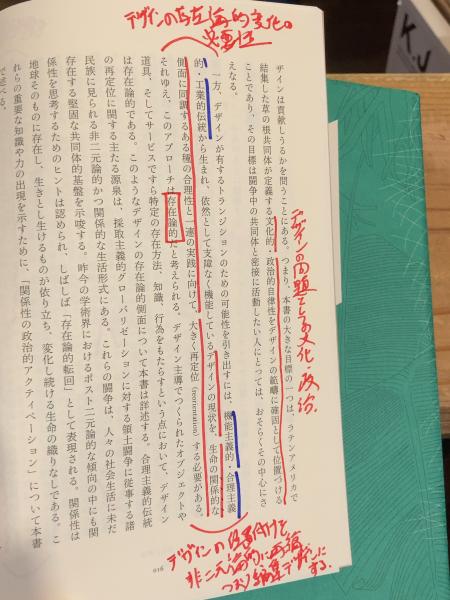 デザインの存在論的変化。
ザインは貢献しうるかを問うことにある。つまり、本書の大きな目標の一つは、ラテンアメリカで
結集した草の根共同体が定義する文化的・政治的自律性をデザインの範疇に確固として位置づける
ことであり、その目標は闘争中の共同体と密接に活動したい人にとっては、おそらくその中心にさ
えなる。
デザインの問題としての文化・政治。
一方、デザインが有するトランジションのための可能性を引き出すには、機能主義的・合理主義
的、工業的伝統から生まれ、依然として支障なく機能しているデザインの現状を、生命の関係的な
側面に同調するある種の合理性と一連の実践に向けて、大きく再定位(reorientation)する必要がある。
それゆえ、このアプローチは存在論的だと考えられる。デザイン主導でつくられたオブジェクトや
道具、そしてサービスですら特定の存在方法、知識、行為をもたらすという点において、デザイン
は存在論的である。このようなデザインの存在論的側面について本書は詳述する。合理主義的伝統
の再定位に関する主たる源泉は、採取主義的グローバリゼーションに対する領土闘争に従事する諸
民族に見られる非二元論的かつ関係的な生活形式にある。これらの闘争は、人々の社会生活に未だ
存在する堅固な共同体的基盤を示唆する。昨今の学術界におけるポスト二元論的な傾向の中にも関
係性を思考するためのヒントは認められ、しばしば「存在論的転回」として表現される。関係性は
地球そのものに存在し、生きとし生けるものが依り立ち、変化し続ける生命の織りなしである。こ
れらの重要な知識や力の出現を示すために、「関係性の政治的アクティベーション」について本書
で述べる。
016
デザインの位置付けを
非二元論的に再編
する。
K.J